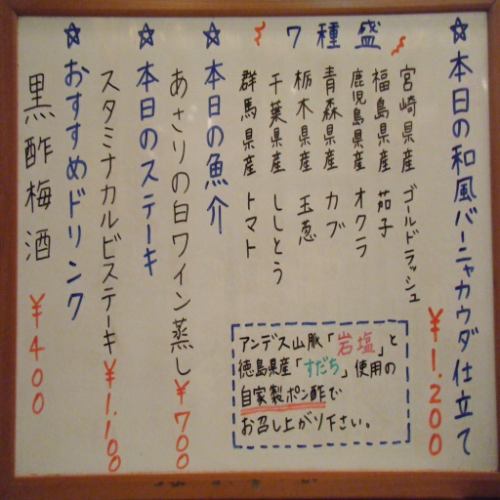 ☆本日の和風バーニャカウダ仕立て ¥1,200
7種盛
宮崎県産 ゴールドラッシュ
福島県産 茄子
鹿児島県産 オクラ
青森県産 カブ
栃木県産 玉葱
千葉県産 ししとう
群馬県産 トマト
アンデス山脈「岩塩」と
徳島県産「すだち」使用の
自家製ポン酢で
お召し上がり下さい。
☆本日の魚介
あさりの白ワイン蒸し ¥700
☆本日のステーキ
スタミナカルビステーキ ¥1,100
☆おすすめドリンク
黒酢梅酒 ¥400